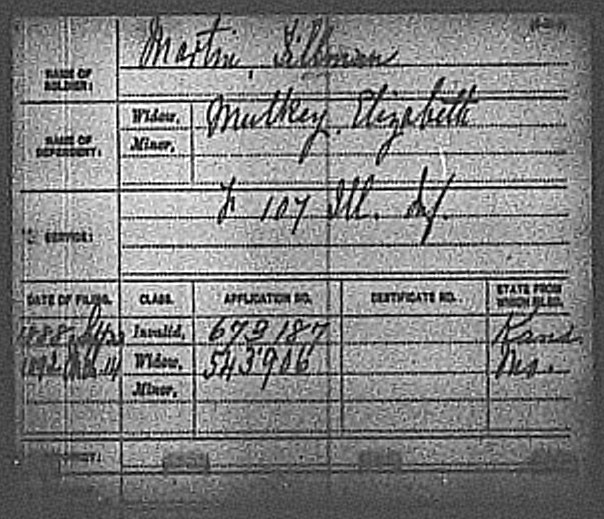 Martin, Tillman
NAME OF
SOLDIER:
Widow, Mulkey, Elizabeth
NAME OF
DEPENDENT:
Minor,
F 107 Ill. Inf.
SERVICE:
DATE OF FILING. CLASS. APPLICATION NO. CERTIFICATE NO. STATE FROM
WHICH FILED.
1888 Invalid, 679187 Kans.
1892 14 Widow, 543906 Mo.
Minor,